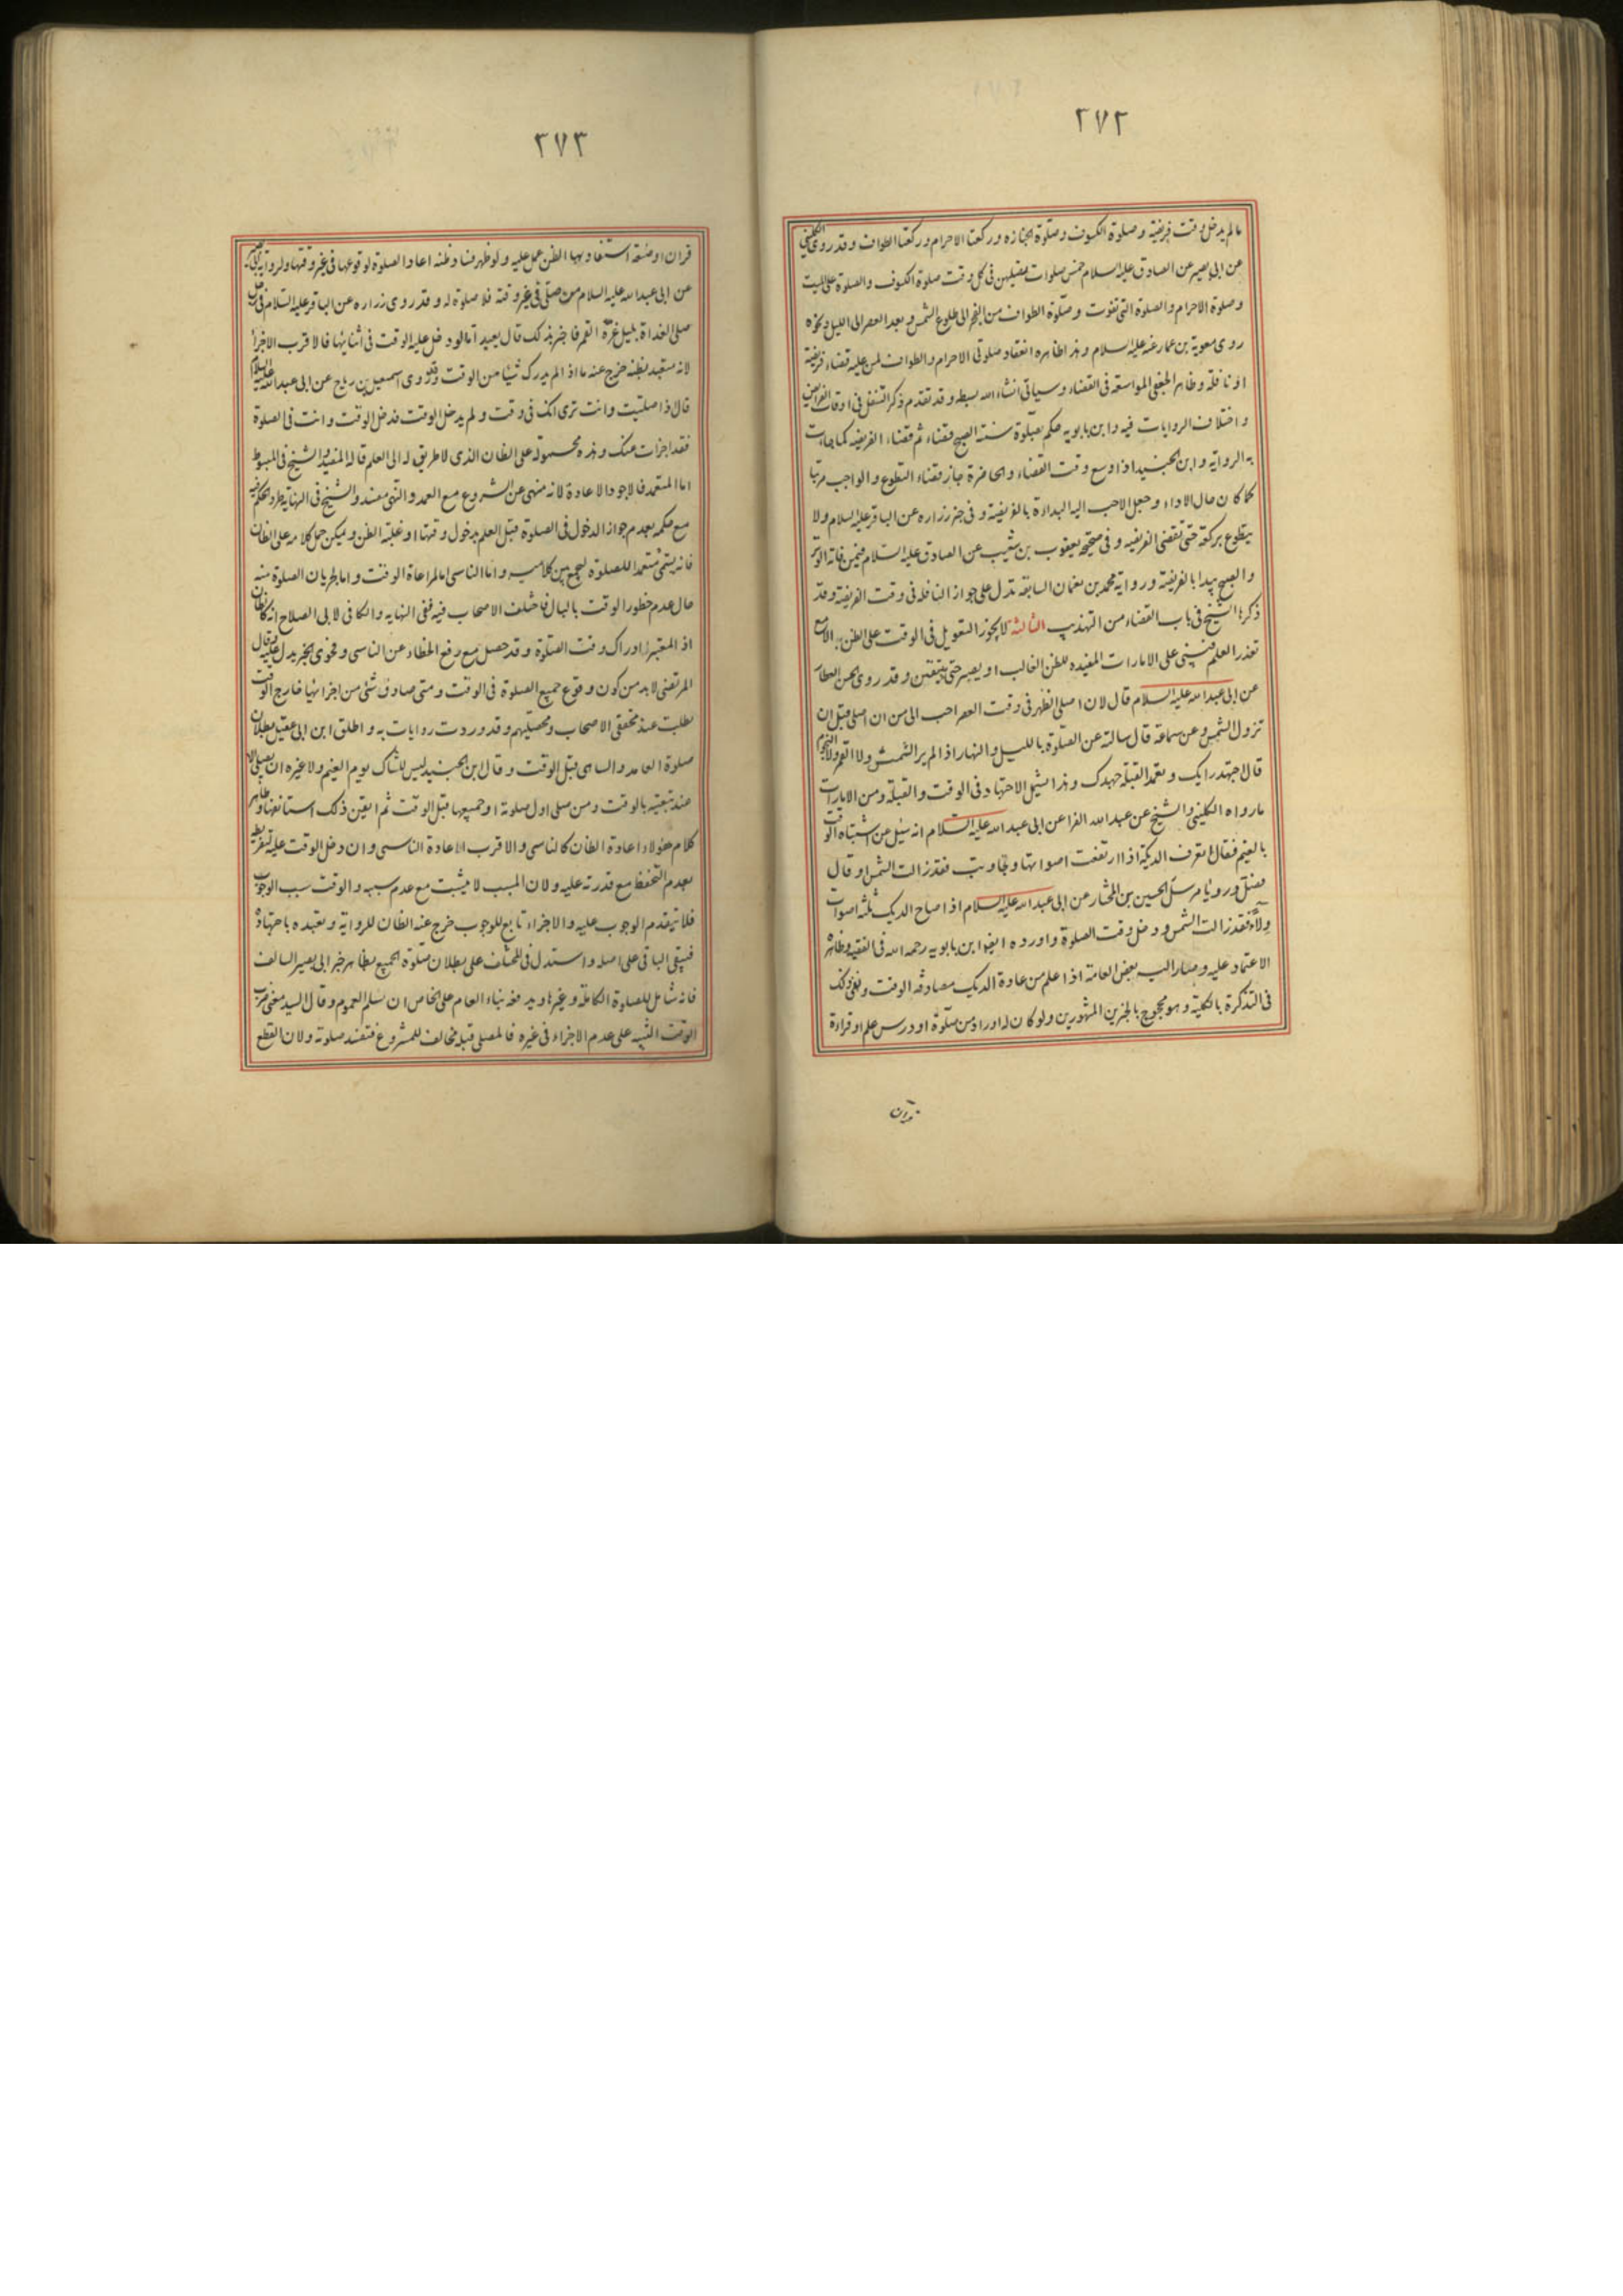 ٢٧٢
مالم يدخل وقت فريضة وصلوة الكسوف وصلوة الجنازه وركعتا الاحرام وركعتا الطواف وقد روى الكليني
عن ابى بصير عن الصادق عليه السلام خمس صلوات يصليهن فى كل وقت صلوة الكسوف والصلوة على الميت
وصلوة الاحرام والصلوة التى تفوت وصلوة الطواف من الفجر الى طلوع الشمس وبعد العصر الى الليل ونحوه
روى معوية بن عمار عنه عليه السلام وهذا ظاهره انعقاد صلوتى الاحرام والطواف لمن عليه قضاء فريضة
او نافلة وظاهر الجعفى المواسعة فى القضاء وسياتى انشاء الله بسطه وقد تقدم ذكر التنفل فى اوقات الفرايض
واختلاف الروايات فيه وابن بابويه حكم بصلوة سنة الصبح قضاء ثم قضاء الفريضه كما جاءت
به الرواية وابن الجنيد اذا وسع وقت القضاء والحاضرة جاز قضاء التطوع والواجب مرتبا
كما كان حال الاداء وجعل الاحب اليه البداءة بالفريضة وفى خبر زراره عن الباقر عليه السلام ولا
يتطوع بركعة حتى تقضى الفريضه وفى صحيحه يعقوب بن شعيب عن الصادق عليه السلام فيمن فاته الوتر
والصبح يبدا بالفريضة ورواية محمد بن نعمان السابقة تدل على جواز النافله فى وقت الفريضة وقد
ذكرها الشيخ فى باب القضاء من التهذيب الثالثه لا يجوز التعويل فى الوقت على الظن الا مع
تعذر العلم فيبنى على الامارات المفيده للظن الغالب او يصبر حتى يتيقن وقد روى الحسن العطار
عن ابى عبد الله عليه السلام قال لان اصلى الظهر فى وقت العصر احب الى من ان اصلى قبل ان
تزول الشمس وعن سماعة قال سالته عن الصلوة بالليل والنهار اذا لم ير الشمس ولا القمر ولا النجوم
قال اجتهد رايك وتعمد القبلة جهدك وهذا يشمل الاجتهاد فى الوقت والقبلة ومن الامارات
مارواه الكلينى والشيخ عن عبد الله الفرا عن ابى عبد الله عليه السلام انه سئل عن اشتباه الوقت
بالغيم فقال تعرف الديكة اذا ارتفعت اصواتها وتجاوبت فقد زالت الشمس او قال
فصل ورويا مرسل الحسين بن المختار عن ابى عبد الله عليه السلام اذا صاح الديك ثلثه اصوات
ولاء فقد زالت الشمس ودخل وقت الصلوة واورده ايضا ابن بابويه رحمه الله فى الفقيه وظاهره
الاعتماد عليه وصار اليه بعض العامة اذا علم من عادة الديك مصادفه الوقت ونفى ذلك
فى التذكرة بالكلية وهو محجوج بالخبرين المشهورين ولو كان له اوراد من صلوة او درس علم او قراءة
قران
٢٧٣
قران او صنعة استفاد بها الظن عمل عليه ولو ظهر فساد ظنه اعاد الصلوة لوقوعها فى غير وقتها ولرواية ابى بصير
عن ابى عبد الله عليه السلام من صلى فى غير وقته فلا صلوة له وقد روى زراره عن الباقر عليه السلام فى رجل
صلى الغداة بليل غره القمر فاخبر بذلك قال يعيد اما لو دخل عليه الوقت فى اثنائها فالاقرب الاجزا
لانه متعبد بظنه خرج عنه ما اذا لم يدرك شيئا من الوقت وقد روى اسمعيل بن رباح عن ابى عبد الله عليه السلام
قال اذا صليت وانت ترى انك فى وقت ولم يدخل الوقت فدخل الوقت وانت فى الصلوة
فقد اجزات عنك وهذه محمولة على الظان الذى لا طريق له الى العلم قاله المفيد والشيخ فى المبسوط
اما المتعمد فالاجود الاعادة لانه منهى عن الشروع مع العمد والنهى مفسد والشيخ فى النهاية طرد الحكم فيه
مع حكمه بعدم جواز الدخول فى الصلوة قبل العلم بدخول وقتها او غلبة الظن ويمكن حمل كلامه على الظان
فانه يسمى متعمدا للصلوة ليجمع بين كلاميه واما الناسى لمراعاة الوقت واما لجريان الصلوة منه
حال عدم خطور الوقت بالبال فاختلف الاصحاب فيه ففى النهايه والكافى لابى الصلاح انه كالظان
اذ المعتبر ادراك وقت الصلوة وقد حصل مع رفع الخطاء عن الناسى وفحوى الخبر يدل عليه قال
المرتضى لابد من كون وقوع جميع الصلوة فى الوقت ومتى صادف شئ من اجزائها خارج الوقت
بطلت عند محققى الاصحاب ومحصليهم وقد وردت روايات به واطلق ابن ابى عقيل بطلان
صلوة العامد والساهى قبل الوقت وقال ابن الجنيد ليس للشاك يوم الغيم ولا غيره ان يصلى الا
عند تيقنه بالوقت ومن صلى اول صلوته او جميعها قبل الوقت ثم ايقن ذلك استانفها وظاهر
كلام هؤلاء اعادة الظان كالناسى والاقرب الاعادة الناسى وان دخل الوقت عليه لتفريطه
بعدم التحفظ مع قدرته عليه ولان المسبب لا يثبت مع عدم سببه والوقت سبب الوجوب
فلا يتقدم الوجوب عليه والاجزاء تابع للوجوب خرج عنه الظان للرواية وتعبده باجتهاده
فيبقى الباقى على اصله واستدل فى المختلف على بطلان صلوة الجميع بظاهر خبر ابى بصير السالف
فانه شامل للصلوة الكاملة وغيرها ويدفعه بناء العام على الخاص ان سلم العموم وقال السيد معنى ضرب
الوقت التنبيه على عدم الاجزاء فى غيره فالمصلى قبله مخالف للمشروع فتفسد صلوته ولان القطع